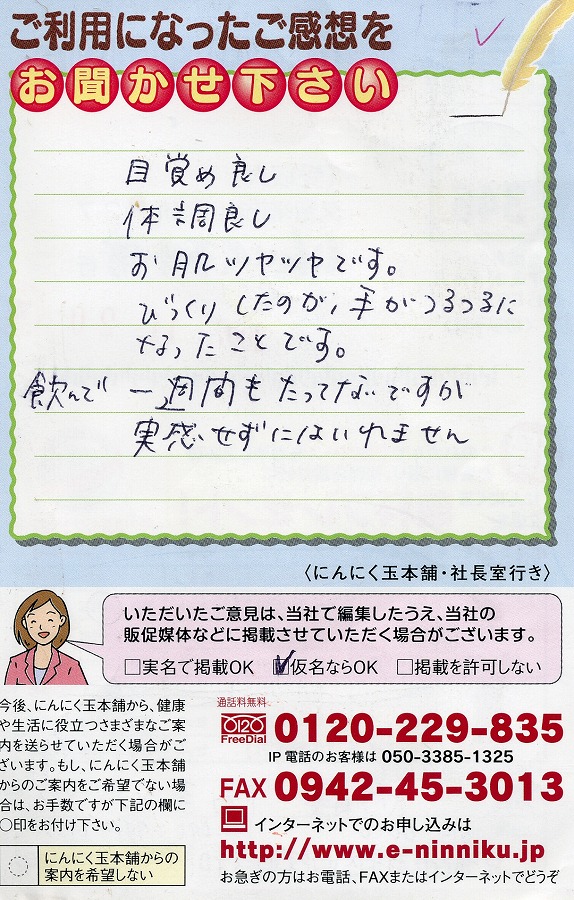 ご利用になったご感想を
お聞かせ下さい
目覚め良し
体調良し
お肌ツヤツヤです。
びっくりしたのが、手がつるつるに
なったことです。
飲んで 一週間もたってないですが
実感せずにはいれません
〈にんにく玉本舗・社長室行き〉
いただいたご意見は、当社で編集したうえ、当社の
販促媒体などに掲載させていただく場合がございます。
□実名で掲載OK ☑仮名ならOK □掲載を許可しない
今後、にんにく玉本舗から、健康
や生活に役立つさまざまなご案
内を送らせていただく場合がご
ざいます。もし、にんにく玉本舗
からのご案内をご希望でない場
合は、お手数ですが下記の欄に
○印をお付け下さい。
にんにく玉本舗からの
案内を希望しない
通話料無料
FreeDial 0120-229-835
IP電話のお客様は 050-3385-1325
FAX 0942-45-3013
インターネットでのお申し込みは
http://www.e-ninniku.jp
お急ぎの方はお電話、FAXまたはインターネットでどうぞ